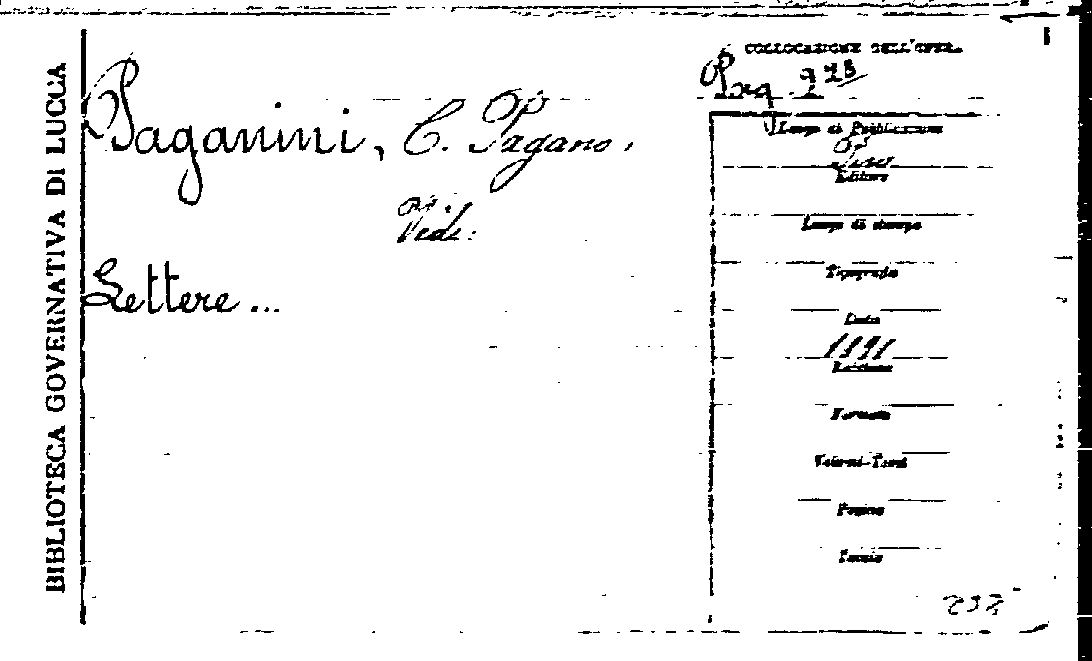 BIBLIOTECA GOVERNATIVA DI LUCCA
Paganini, C. Pagano.
Vedi:
Lettere...
COLLOCAZIONE DELL'OPERA
Luogo di Pubblicazione
Editore
Luogo di stampa
Tipografia
Data
1891
Edizione
Formato
Volumi-Tomi
Pagine